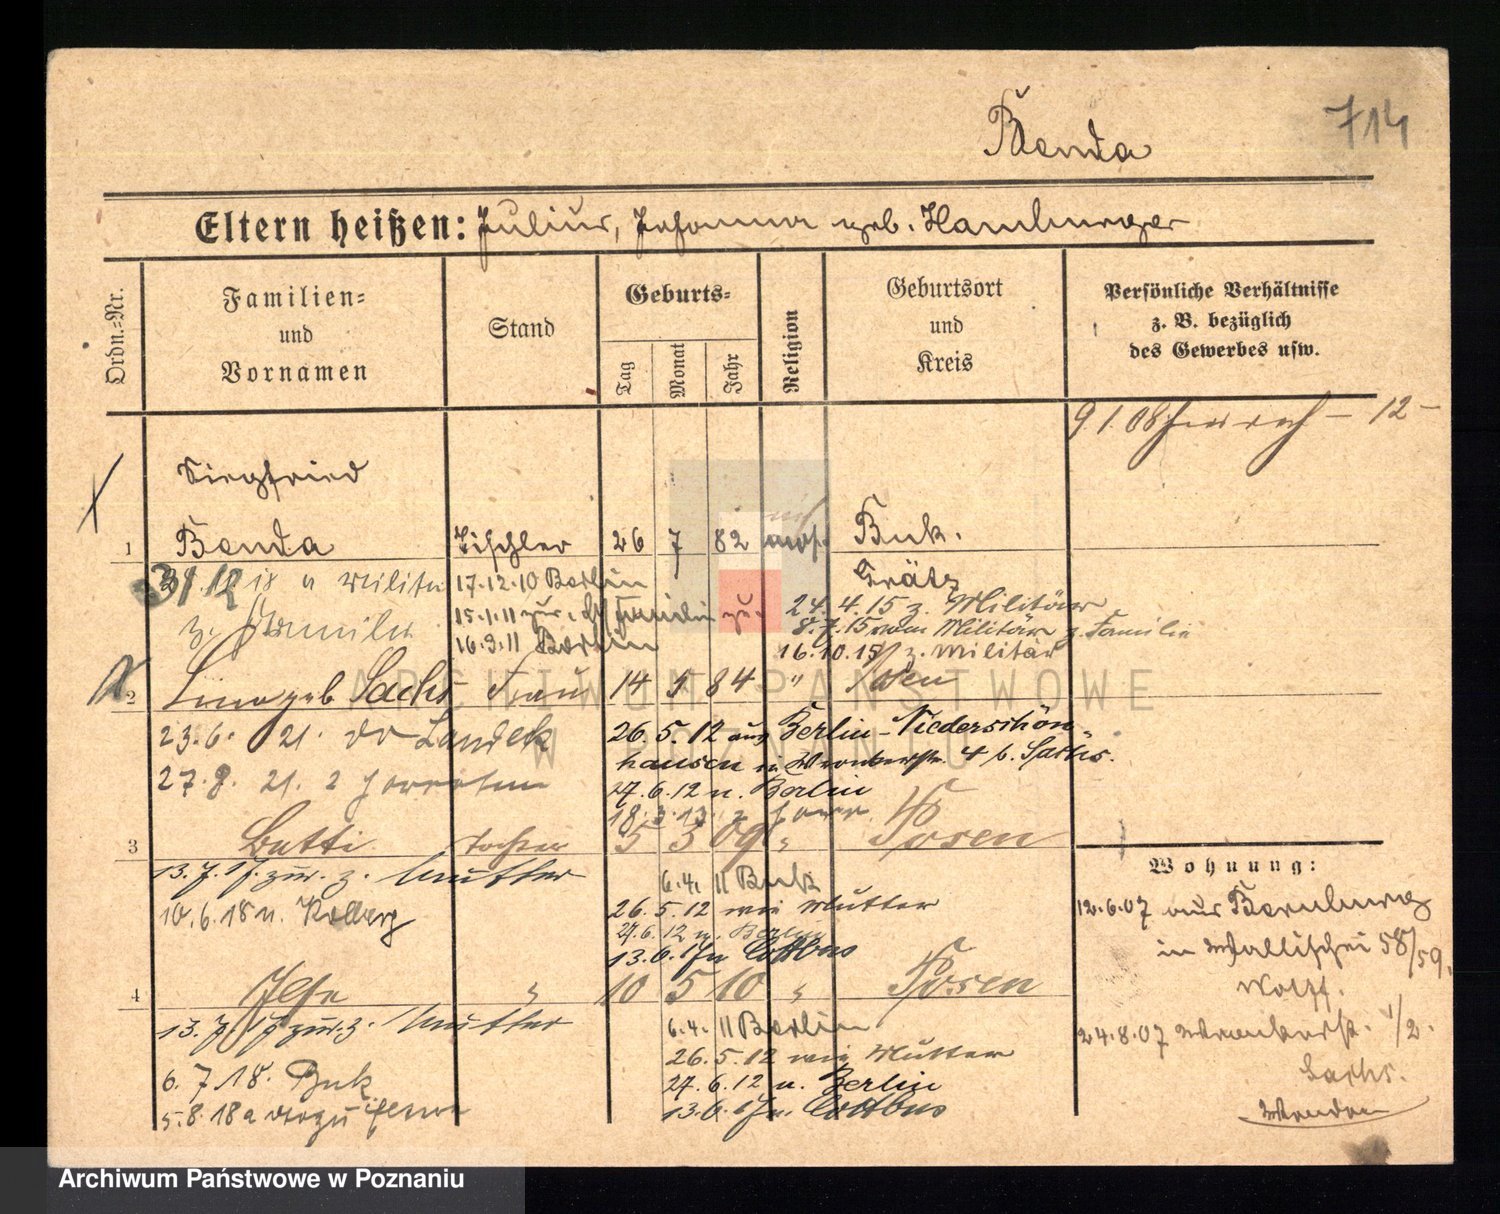 Benda
714
Eltern heißen: Julius, Johanna geb. Hamburger
Ordn.=Nr.
Familien=
und
Vornamen
Stand
Geburts=
Tag
Monat
Jahr
Religion
Geburtsort
und
Kreis
Persönliche Verhältnisse
z. B. bezüglich
des Gewerbes usw.
9 1. 08 – 12 –
Siegfried
1 Benda Tischler 26 7 82 mos. Buk.
Grätz
31.12 Militär
z. Familie
17.12.10 Berlin
15.1.11 zur. Familie
16.3.11 Berlin
24.4.15 z. Militär
8.7.15 vom Militär z. Familie
16.10.15 z. Militär
2 Lina geb Sachs Frau 14 84 " Posen
23.6. 21. Landek
27.8. 21.
26.5.12 aus Berlin-Niederschön
hausen in 4 b. Sachs.
27.6.12 n. Berlin
18.3.13
3 Betti Tochter 5 3 09 " Posen
13.7.17. zur. z. Mutter
10.6.18 n. Kolberg
6.4.11 Buk
26.5.12 wie Mutter
27.6.12 n. Berlin
13.6.17 n Cottbus
4 Ilse " 10 5 10 " Posen
13.7.17 zur. z. Mutter
6.7.18. Buk
5.8.18
6.4.11 Berlin
26.5.12 wie Mutter
27.6.12 n. Berlin
13.6.17 n. Cottbus
Wohnung:
12.6.07 aus Bernburg
in Wallischei 58/59.
Wolff.
24.8.07 1/2.
Sachs.
ARCHIWUM PAŃSTWOWE
W POZNANIU
Archiwum Państwowe w Poznaniu